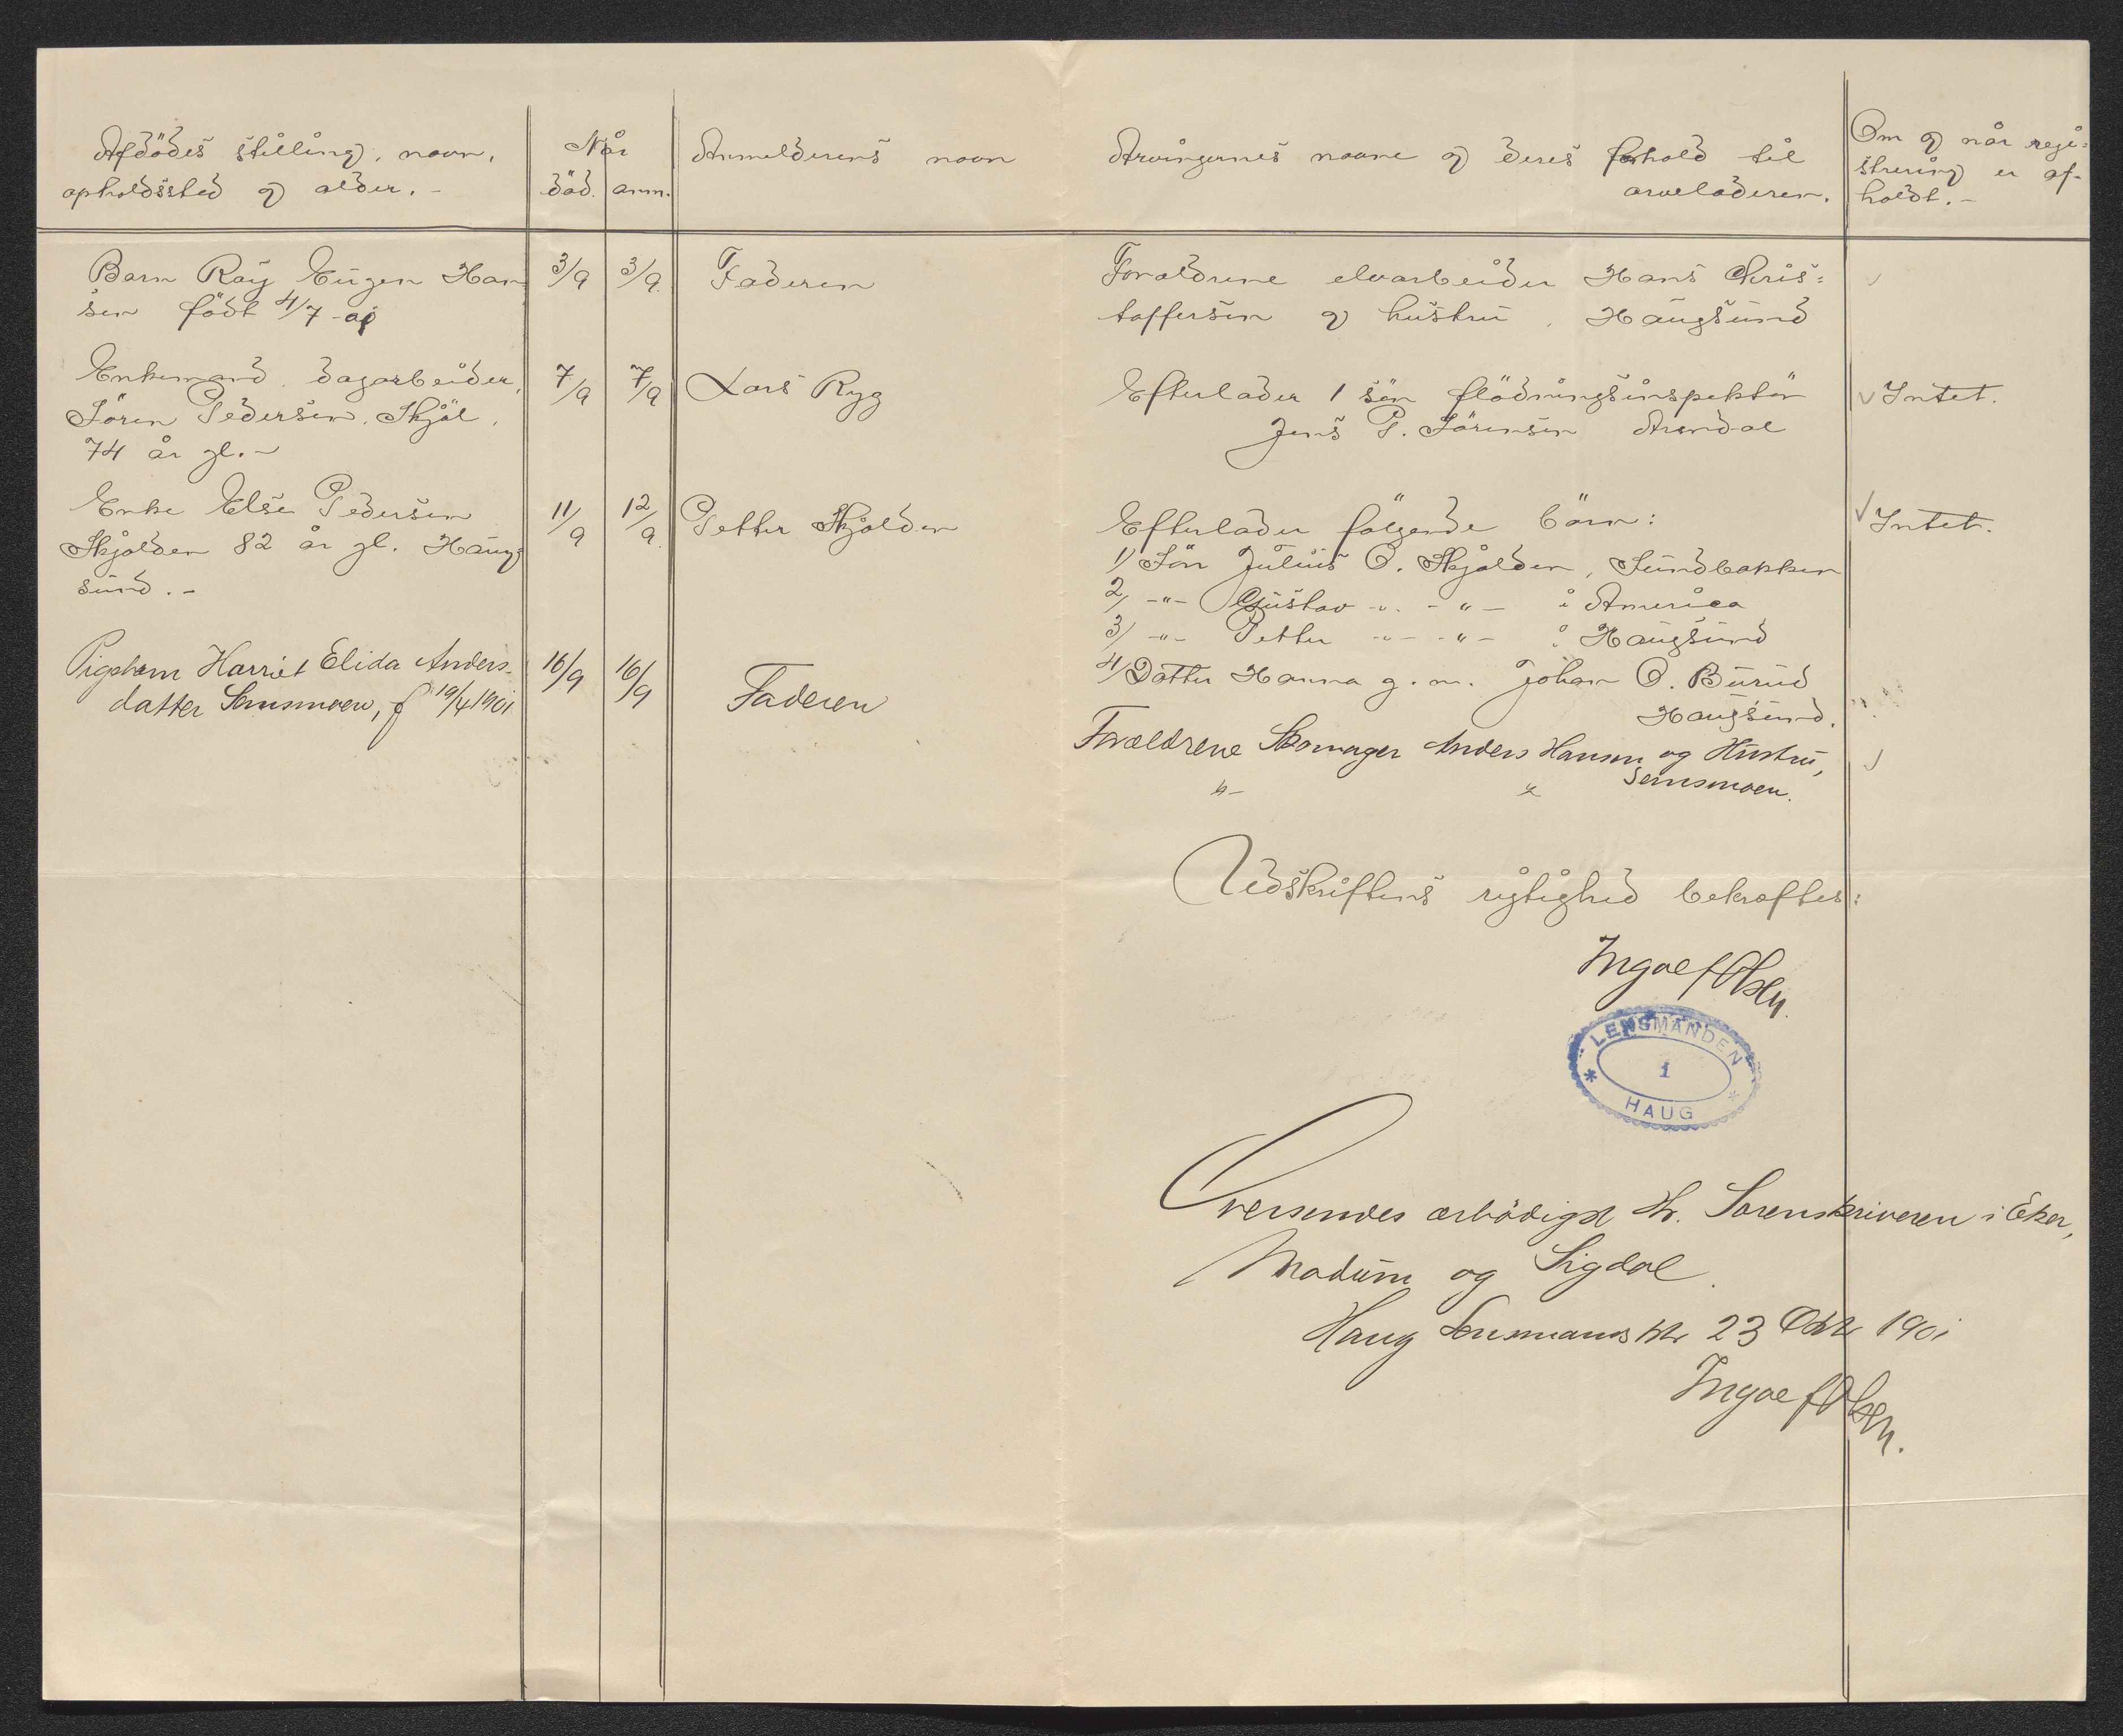 Afdödes stilling, navn,
opholdssted og alder. -
Når
död. anm.
Anmelderens navn
Arvingernes navne og deres forhold til
arveladeren.
Om og når regi-
strering er af-
holdt. -
Barn Ray Eugen Han
sen födt 4/7 -01
3/9 3/9
Faderen
Foraldrene elvarbeider Hans Chris-
toffersen og hustru, Haugsund
Enkemand dagarbeider,
Sören Pedersen, Skjöl,
74 år gl. -
7/9 7/9
Lars Ryg
Efterlader 1 sön flödningsinspektör
Jens P. Sörensen Arendal
Intet.
Enke Else Pedersen
Skjolden 82 år gl. Haug
sund. -
11/9 12/9
Petter Skjolden
Efterlader følgende börn:
1) Sön Julius O. Skjolden, Sundbakken
2) -"- Gustav -"- -"- i America
3) -"- Petter -"- -"- i Haugsund
4) Datter Hanna g. m. Johan O. Burud
Haugsund.
Intet.
Pigebarn Harriet Elida Anders-
datter Semsmoen, f 19/4 1901
16/9 16/9
Faderen
Forældrene Skomager Anders Hansen og Hustru,
Semsmoen.
Udskriftens rigtighed bekræftes:
Ingolf Olsen.
LENSMANDEN
i
HAUG
Oversendes ærbödigst Hr. Sorenskriveren i Eker,
Modum og Sigdal.
Haug Lensmansktr 23 Oktr 1901
Ingolf Olsen.